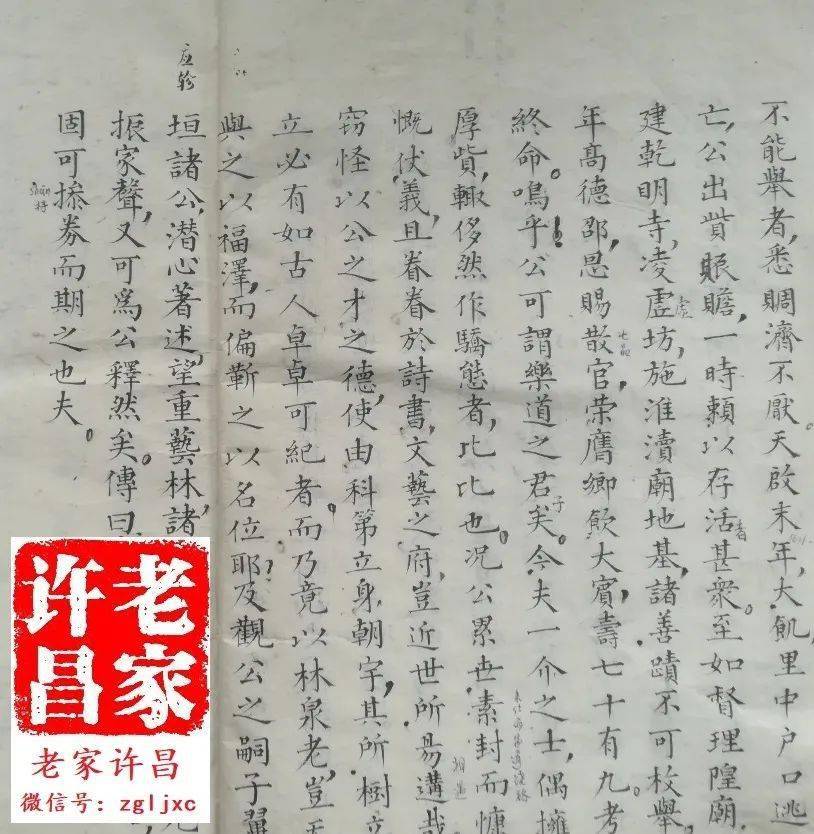 不能舉者，悉賙濟不厭。天啟末年，大飢，里中户口逃
亡，公出貲賑贍，一時賴以存活者甚衆。至如督理隍廟，
建乾明寺，凌虛坊，施淮瀆廟地基，諸善蹟不可枚舉。
虛
年高德邵，恩賜散官，荣膺鄉飲大賓，壽七十有九，考
七品
終命。嗚乎！公可謂樂道之君子矣。今夫一介之士，偶擁
厚貲，輙侈然作驕態者，比比也。况公累世素封而慷
慨伏義，且眷眷於詩書，文藝之府，豈近世所易遘哉
竊怪以公之才之德，使由科第立身朝宇，其所樹立
立必有如古人卓卓可紀者。而乃竟以林泉老，豈天
與之以福澤，而偏靳之以名位耶？及觀公之嗣子翼
垣諸公，潜心著述，望重藝林，諸
应轸
振家聲，又可爲公釋然矣。傳曰
固可摻券而期之也夫。
shān
持
老家
许昌
老家许昌
微信号：zgljxc